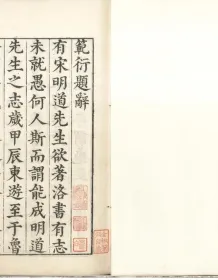 範衍題辭
有宋明道先生欲著洛書有志
未就愚何人斯而謂能成明道
先生之志歲甲辰東遊至于魯